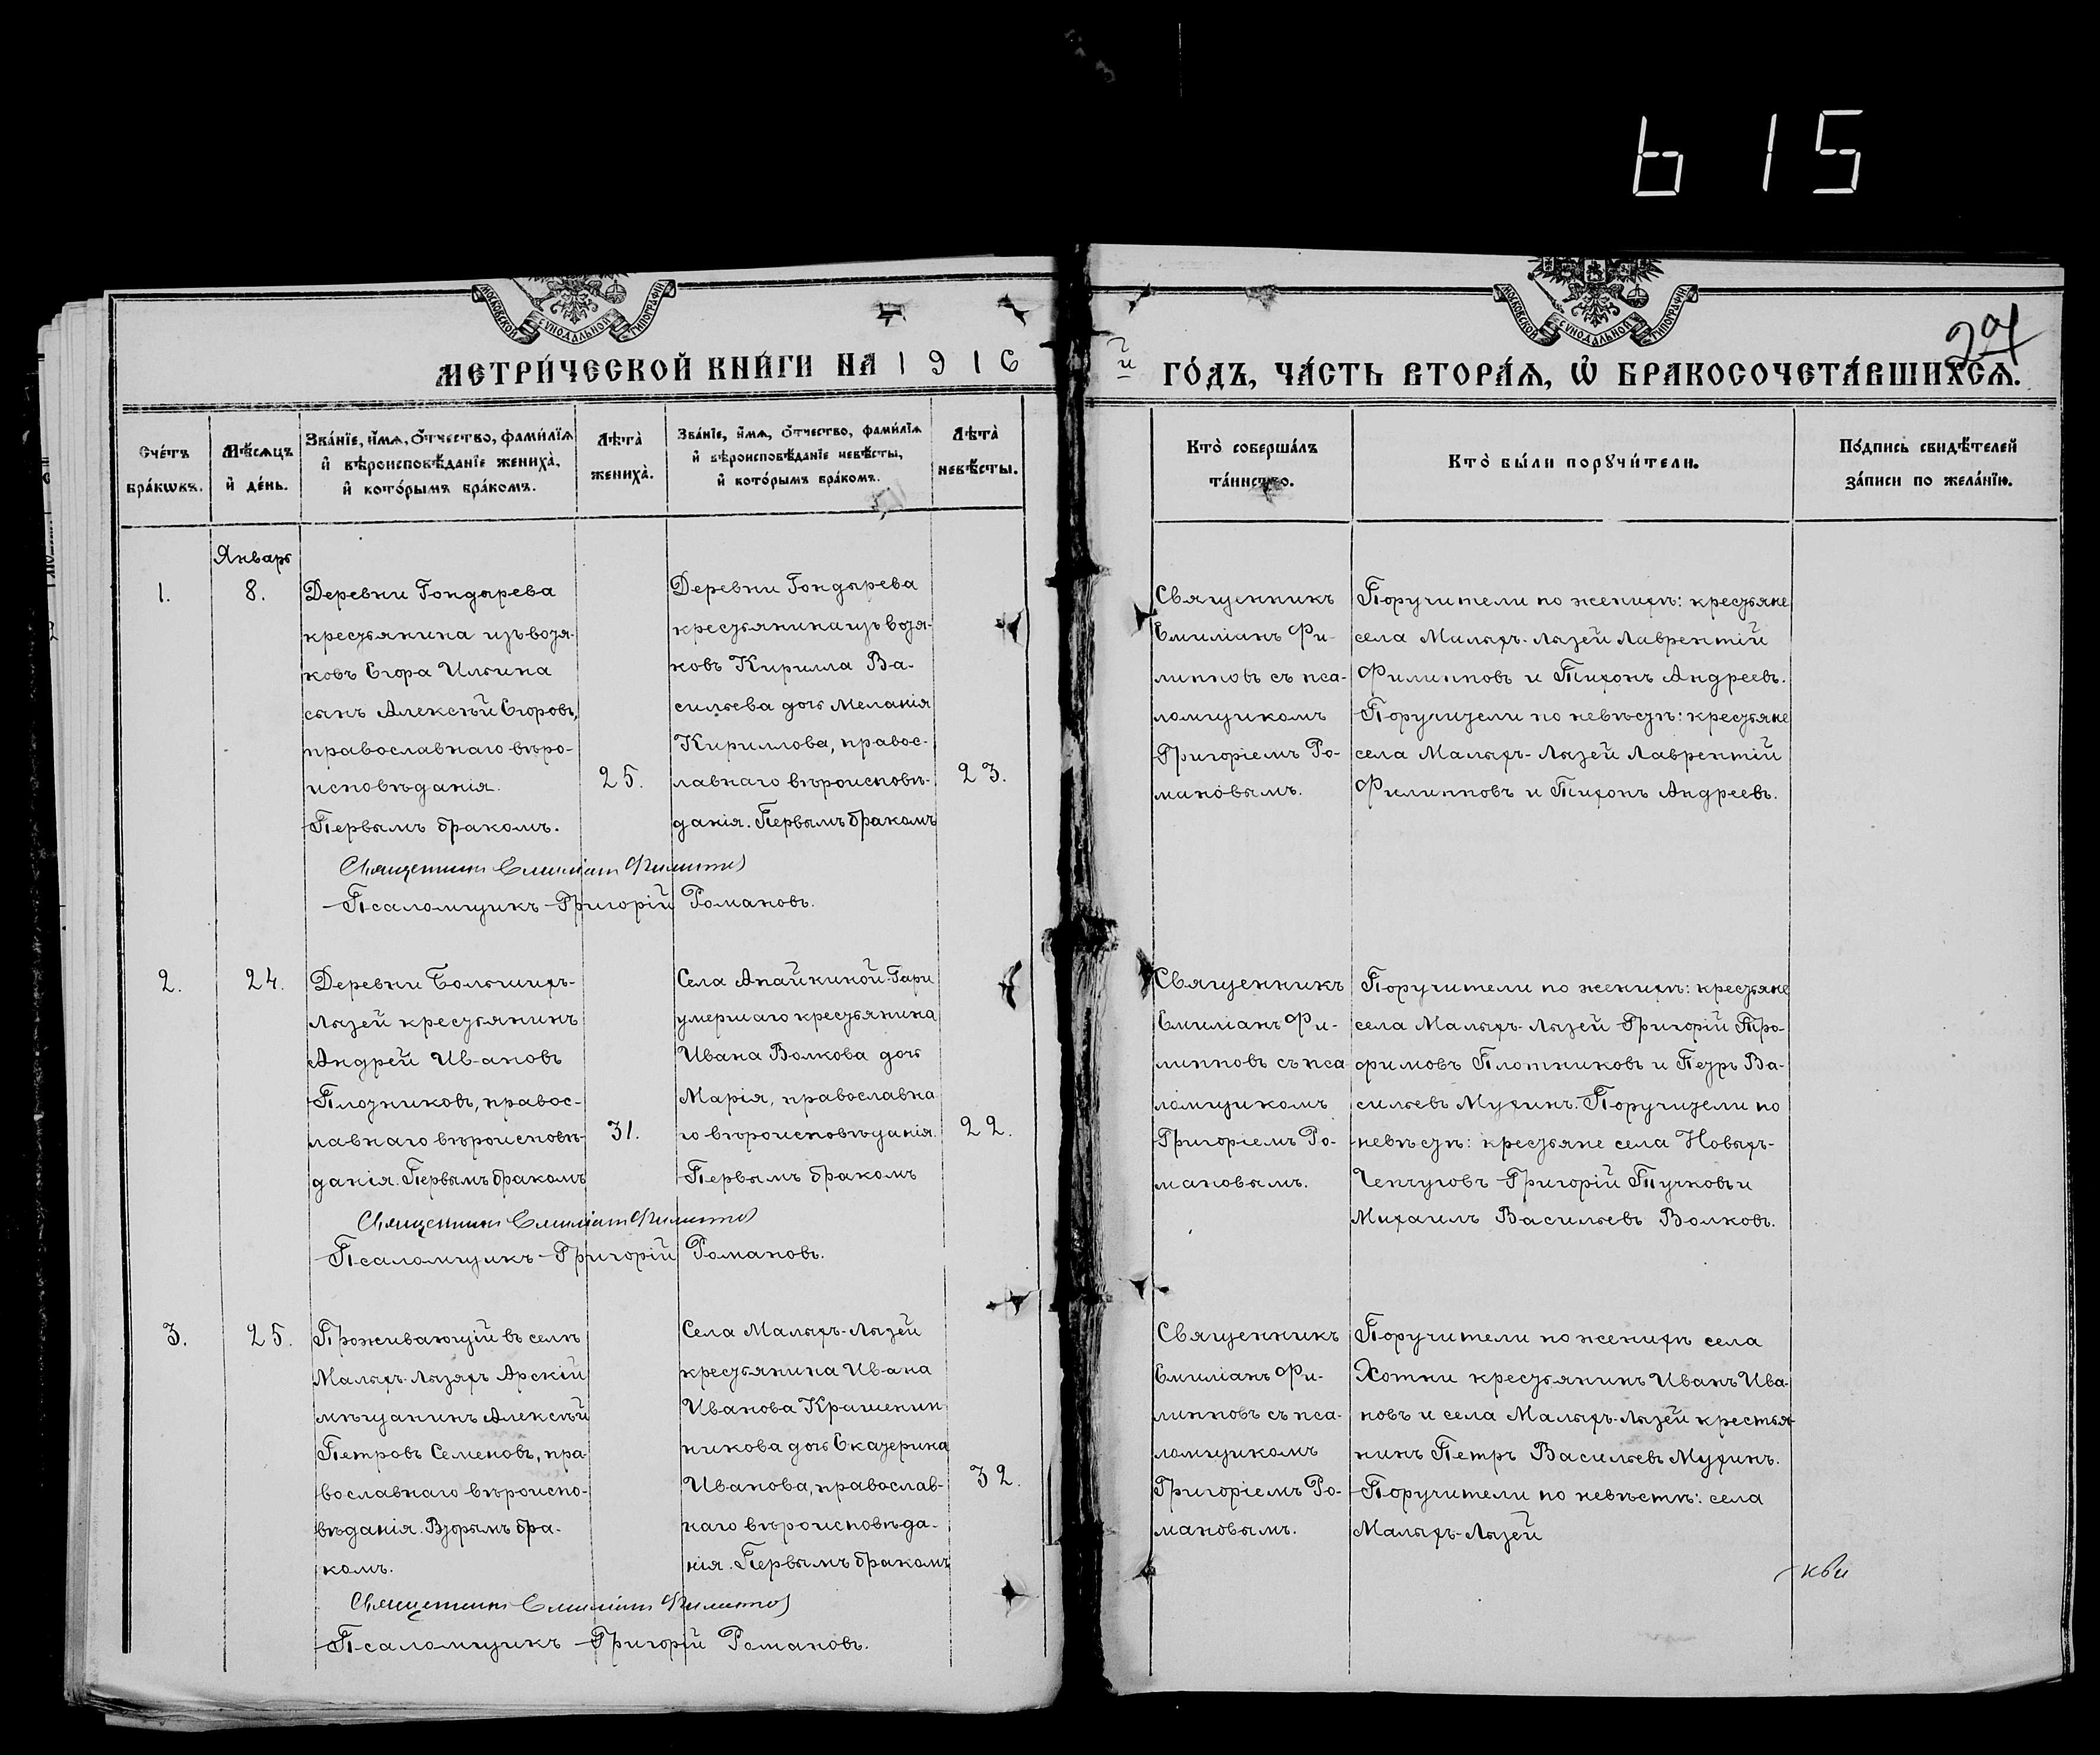 615
МОСКОВСКОЙ СѴНОДАЛЬНОЙ ТИПОГРАФІИ
МОСКОВСКОЙ СѴНОДАЛЬНОЙ ТИПОГРАФІИ
МЕТРИ́ЧЕСКОЙ КНИ́ГИ НА 1916
й ГО́ДЪ, ЧА́СТЬ ВТОРА́Ѧ, Ѽ БРАКОСОЧЕТА́ВШИХСѦ.
Сче́тъ
бра́кωвъ.
Мѣ́сѧцъ
и҆ де́нь.
Зва́нїе, и҆́мѧ, ѻ҆́тчество, фами́лїѧ
и҆ вѣроисповѣ́данїе жениха̀,
и҆ кото́рымъ бра́комъ.
Лѣ́та̀
жениха̀.
Зва́нїе, и҆́мѧ, ѻ҆́тчество, фами́лїѧ
и҆ вѣроисповѣ́данїе невѣ́сты,
и҆ кото́рымъ бра́комъ.
Лѣ́та̀
невѣ́сты.
Кто̀ соверша́лъ
та́инство.
Кто̀ бы́ли порꙋчи́тели.
По́дпись свидѣ́телей
за́писи по жела́нїю.
Январь
1.
8.
Деревни Гондырева
крестьянина изъ вотя-
ковъ Егора Ильина
сынъ Алексѣй Егоровъ,
православнаго вѣро-
исповѣданія.
Первымъ бракомъ.
25.
Деревни Гондырева
крестьянина изъ вотя-
ковъ Кирилла Ва-
сильева дочь Меланія
Кириллова, правос-
лавнаго вѣроисповѣ-
данія. Первымъ бракомъ
23.
Священникъ
Емиліанъ Фи-
липповъ съ пса-
ломщикомъ
Григоріемъ Ро-
мановымъ.
Поручители по женихѣ: крестьяне
села Малыхъ-Лызей Лаврентій
Филипповъ и Тихонъ Андреевъ.
Поручители по невѣстѣ: крестьяне
села Малыхъ-Лызей Лаврентій
Филипповъ и Тихонъ Андреевъ.
Священникъ Емиліанъ Филипповъ
Псаломщикъ Григорій Романовъ.
2.
24.
Деревни Большихъ-
Лызей крестьянинъ
Андрей Ивановъ
Плотниковъ, правос-
лавнаго вѣроисповѣ-
данія. Первымъ бракомъ
31.
Села Апайкиной-Гари
умершаго крестьянина
Ивана Волкова дочь
Марія, православна
го вѣроисповѣданія.
Первымъ бракомъ
22.
Священникъ
Емиліанъ Фи-
липповъ съ пса
ломщикомъ
Григоріемъ Ро-
мановымъ.
Поручители по женихѣ: крестьяне
села Малыхъ-Лызей Григорій Тро-
фимовъ Плотниковъ и Петръ Ва-
сильевъ Мухинъ. Поручители по
невѣстѣ: крестьяне села Новыхъ-
Чепчуговъ Григорій Пучковъ и
Михаилъ Васильевъ Волковъ.
Священникъ Емиліанъ Филипповъ
Псаломщикъ Григорій Романовъ.
3.
25.
Проживающій въ селѣ
Малыхъ-Лызяхъ Арскій
мѣщанинъ Алексѣй
Петровъ Семеновъ, пра
вославнаго вѣроиспо-
вѣданія. Вторымъ бра-
комъ.
Села Малыхъ-Лызей
крестьянина Ивана
Иванова Крашенин
никова дочь Екатерина
Иванова, православ-
наго вѣроисповѣда-
нія. Первымъ бракомъ
32.
Священникъ
Емиліанъ Фи-
липповъ съ пса-
ломщикомъ
Григоріемъ Ро-
мановымъ.
Поручители по женихѣ села
Хотни крестьянинъ Иванъ Ива-
новъ и села Малыхъ-Лызей крестья-
нинъ Петръ Васильевъ Мухинъ.
Поручители по невѣстѣ: села
Малыхъ-Лызей
Священникъ Емиліанъ Филипповъ
Псаломщикъ Григорій Романовъ.